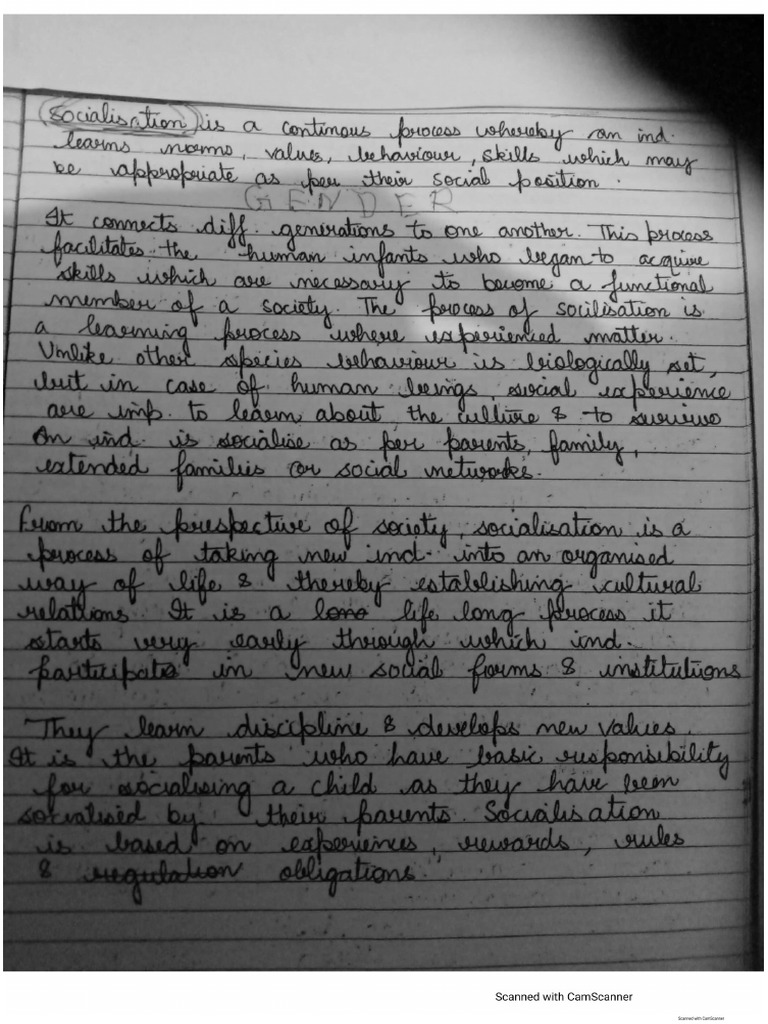 Socialisation is a continous process whereby an ind.
learns norms, values, behaviour, skills which may
be appropriate as per their social position.
GENDER
It connects diff. generations to one another. This process
facilitates the human infants who began to acquire
skills which are necessary to become a functional
member of a society. The process of socilisation is
a learning process where experienced matter.
Unlike other species behaviour is biologically set,
but in case of human beings, social experience
are imp. to learn about the culture & to survive
An ind. is socialise as per parents, family,
extended families or social networks.
From the prespective of society, socialisation is a
process of taking new ind. into an organised
way of life & thereby establishing cultural
relations. It is a long life long process it
starts very early through which ind.
participate in new social forms & institutions
They learn discipline & develops new values.
It is the parents who have basic responsibility
for socialising a child as they have been
socialised by their parents. Socialisation
is based on experiences, rewards, rules
& regulation obligations.
Scanned with CamScanner
Scanned with CamScanner